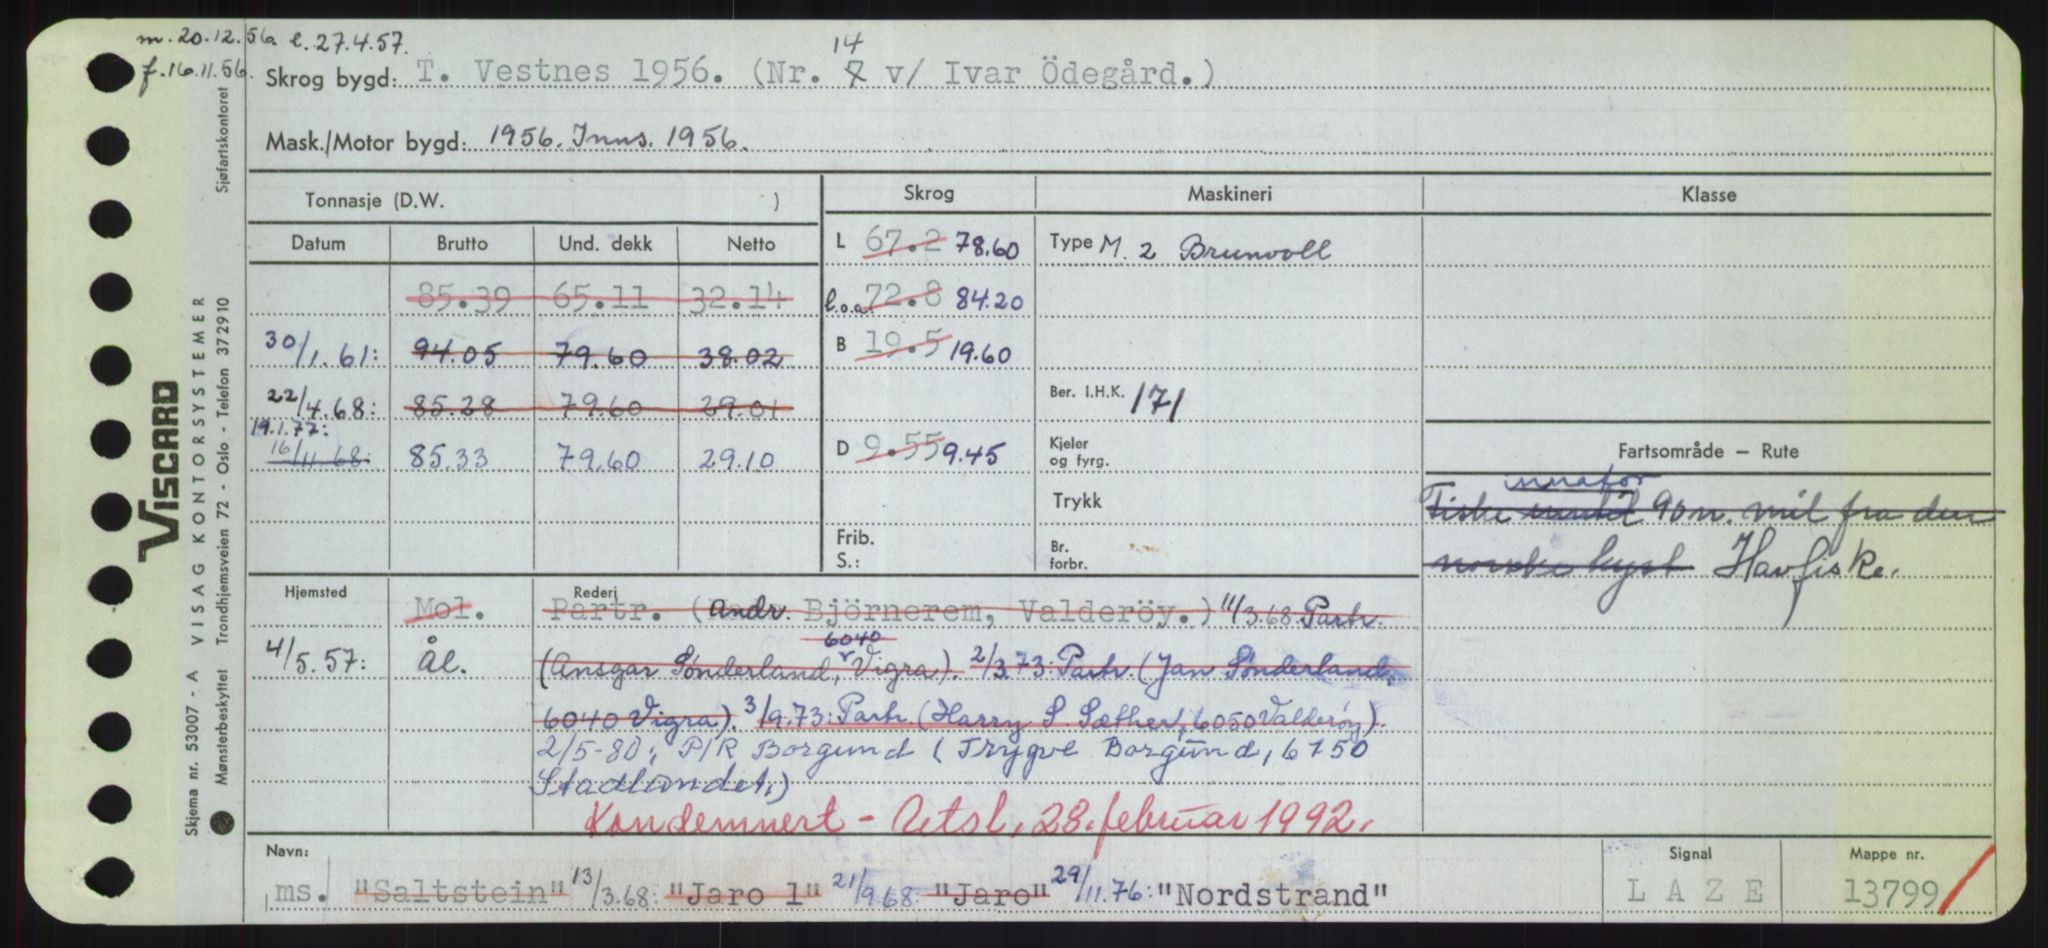 m. 20.12.56 l. 27.4.57.
f. 16.11.56.
14
Skrog bygd: T. Vestnes 1956. (Nr. 7 v/ Ivar Ödegård.)
Mask./Motor bygd: 1956. Inns. 1956.
Tonnasje (D.W. )
Skrog Maskineri Klasse
Datum Brutto Und. dekk Netto
L 67.2 78.60 Type M. 2 Brunvoll
85.39 65.11 32.14
l.o.a. 72.8 84.20
30/1.61: 94.05 79.60 38.02
B 19.5 19.60
22/4.68: 85.28 79.60 29.01
Ber. I.H.K. 171
19.1.77:
16/11.68: 85.33 79.60 29.10
D 9.55 9.45 Kjeler og fyrg.
Fartsområde – Rute
innafor
Trykk
Fiske inntil 90 n. mil fra den
Frib. S.: Br. forbr.
norske kyst Havfiske.
Hjemsted Rederi
Mol. Partr. (Andr. Björnerem, Valderöy.) 11/3.68: Partr.
6040
4/5.57: Ål. (Ansgar Sønderland, Vigra). 2/3.73: Partr. (Jan Sønderland,
6040 Vigra). 3/9.73: Partr. (Harry S. Sæther, 6050 Valderøy).
2/5-80: P/R Borgund (Trygve Borgund, 6750
Stadlandet.)
Kondemnert – Utsl. 28. februar 1992.
Navn: Signal Mappe nr.
ms. "Saltstein" 13/3.68: "Jaro 1" 21/9.68: "Jaro" 29/11.76: "Nordstrand" LAZE 13799
VISCARD
Skjema nr. 53007 - A VISAG KONTORSYSTEMER
Mønsterbeskyttet Trondhjemsveien 72 - Oslo - Telefon 372910 Sjøfartskontoret